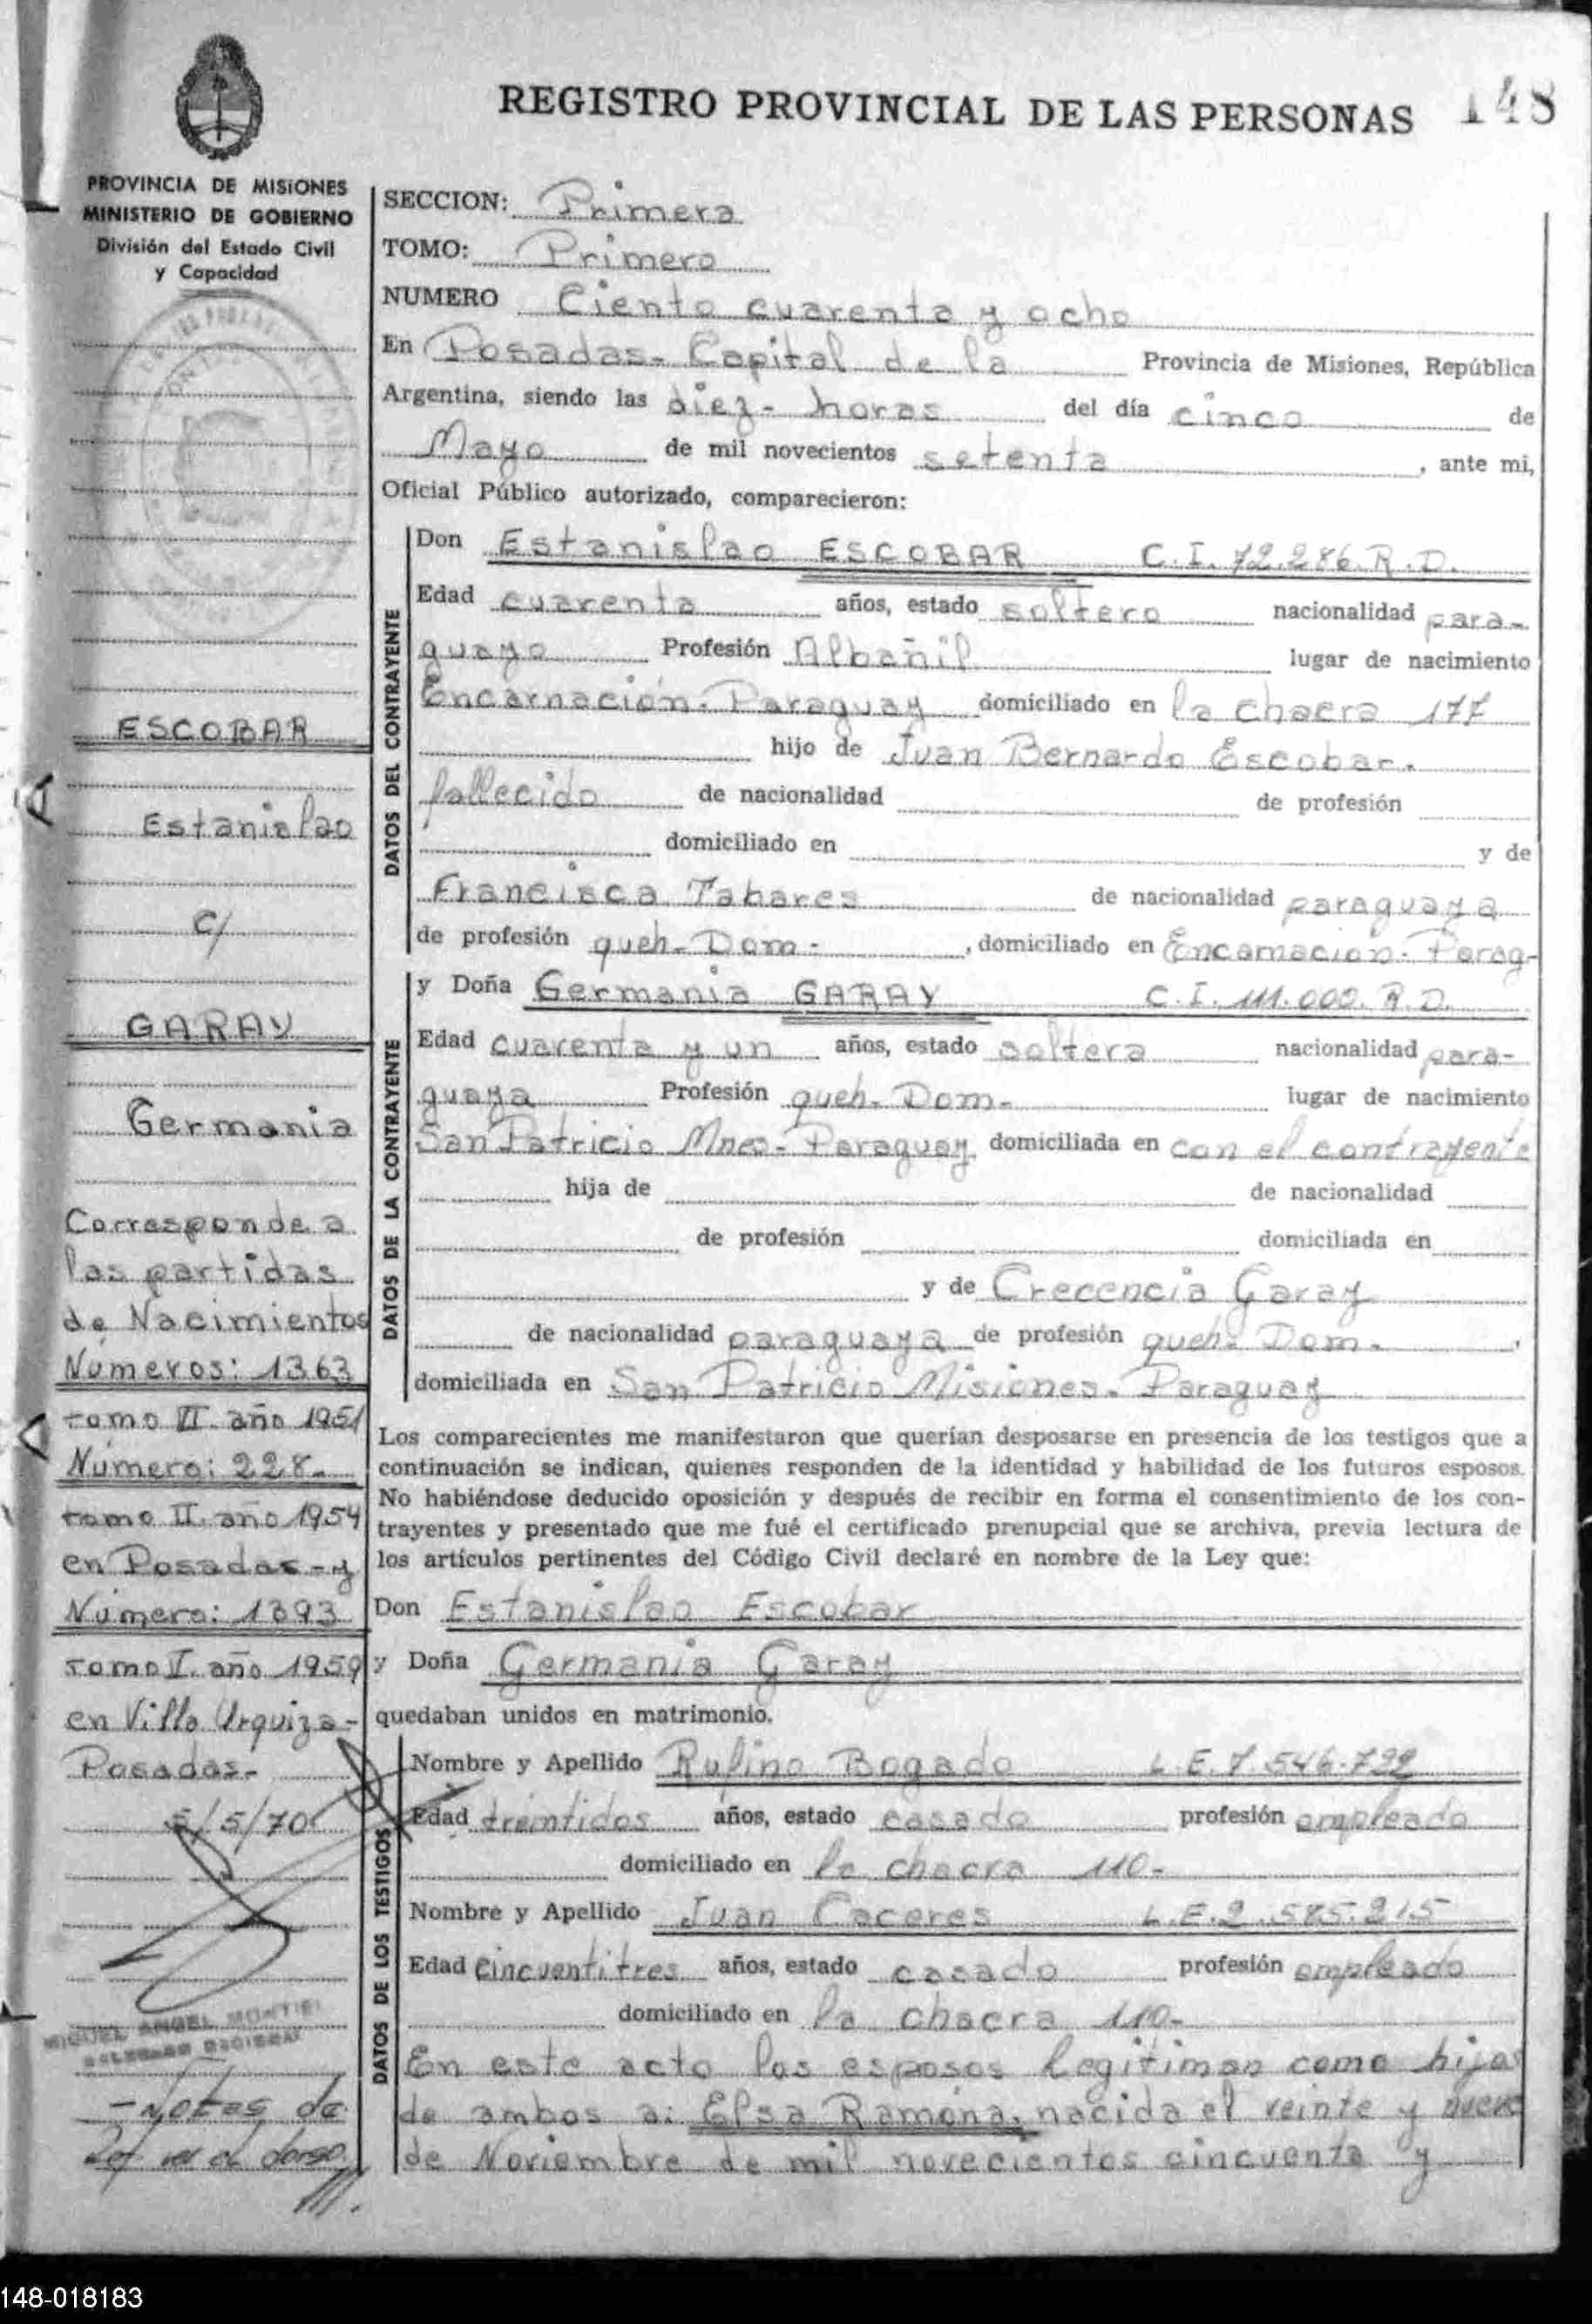 REGISTRO PROVINCIAL DE LAS PERSONAS 148
PROVINCIA DE MISIONES
MINISTERIO DE GOBIERNO
División del Estado Civil
y Capacidad
ESCOBAR
Estanislao
c/
GARAY
Germania
Corresponde a
las partidas
de Nacimientos
Números: 1363
tomo II. año 1951
Número: 228-
tomo II. año 1954
en Posadas-y
Número: 1393
tomo I. año 1959
en Villa Urquiza-
Posadas-
5/5/70
MIGUEL ANGEL MONTIEL
- Notas de
Ref ver al dorso
SECCION: Primera
TOMO: Primero
NUMERO Ciento cuarenta y ocho
En Posadas- Capital de la Provincia de Misiones, República
Argentina, siendo las diez- horas del día cinco de
Mayo de mil novecientos setenta, ante mi,
Oficial Público autorizado, comparecieron:
DATOS DEL CONTRAYENTE
Don Estanislao ESCOBAR C.I. 72.286. R.D.
Edad cuarenta años, estado soltero nacionalidad para-
guayo Profesión Albañil lugar de nacimiento
Encarnación. Paraguay domiciliado en la chacra 177
hijo de Juan Bernardo Escobar.
fallecido de nacionalidad de profesión
domiciliado en y de
Francisca Tabares de nacionalidad paraguaya
de profesión queh- Dom-, domiciliado en Encarnacion. Parag-
DATOS DE LA CONTRAYENTE
y Doña Germania GARAY C.I. 111.000. R.D.
Edad cuarenta y un años, estado soltera nacionalidad para-
guaya Profesión queh- Dom- lugar de nacimiento
San Patricio Mnes- Paraguay domiciliada en con el contrayente
hija de de nacionalidad
de profesión domiciliada en
y de Crecencia Garay
de nacionalidad paraguaya de profesión queh- Dom-,
domiciliada en San Patricio Misiones. Paraguay
Los comparecientes me manifestaron que querían desposarse en presencia de los testigos que a
continuación se indican, quienes responden de la identidad y habilidad de los futuros esposos.
No habiéndose deducido oposición y después de recibir en forma el consentimiento de los con-
trayentes y presentado que me fué el certificado prenupcial que se archiva, previa lectura de
los artículos pertinentes del Código Civil declaré en nombre de la Ley que:
Don Estanislao Escobar
y Doña Germania Garay
quedaban unidos en matrimonio.
DATOS DE LOS TESTIGOS
Nombre y Apellido Rufino Bogado L.E. 7.546.722
Edad treintidos años, estado casado profesión empleado
domiciliado en la chacra 110-
Nombre y Apellido Juan Caceres L.E. 2.585.215
Edad cincuentitres años, estado casado profesión empleado
domiciliado en la chacra 110-
En este acto los esposos legitiman como hijos
de ambos a: Elsa Ramona, nacida el veinte y nueve
de Noviembre de mil novecientos cincuenta y
148-018183